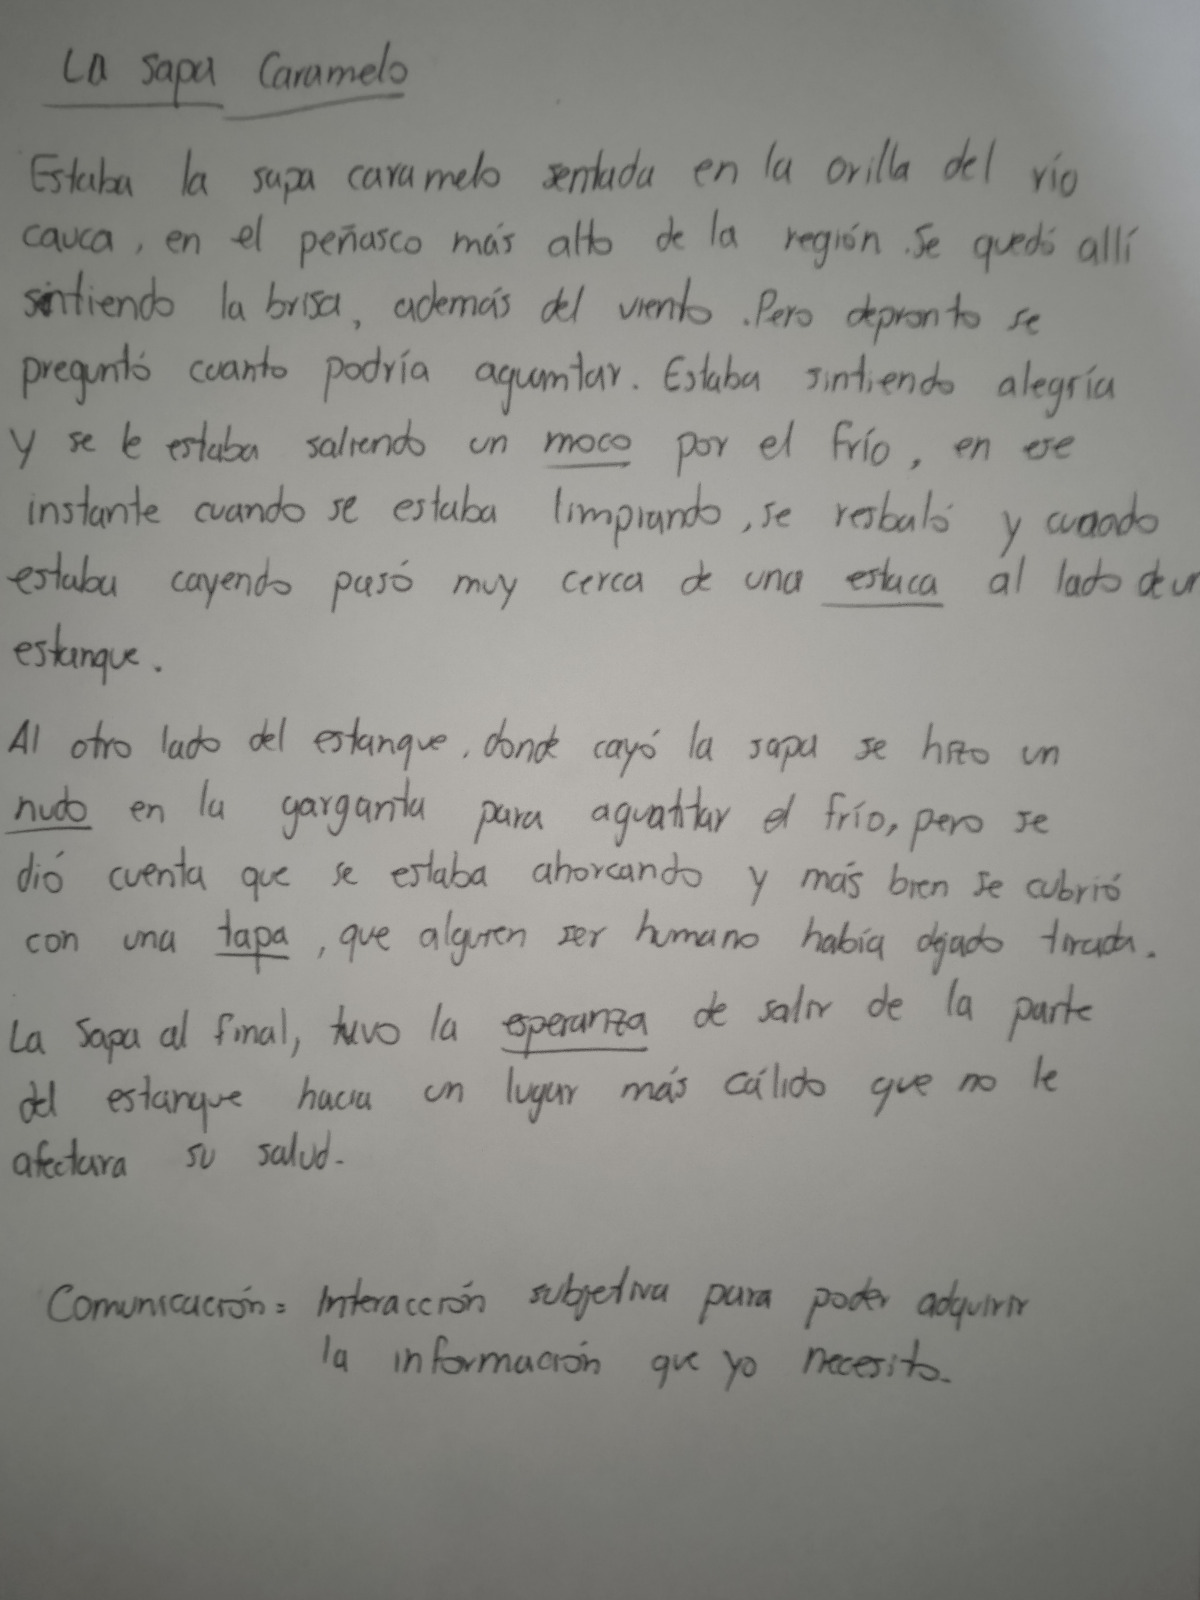 La sapa Caramelo
Estaba la sapa caramelo sentada en la orilla del río
cauca, en el peñasco más alto de la región. Se quedó allí
sintiendo la brisa, además del viento. Pero depronto se
preguntó cuanto podría aguantar. Estaba sintiendo alegría
y se le estaba saliendo un moco por el frío, en ese
instante cuando se estaba limpiando, se resbaló y cuando
estaba cayendo pasó muy cerca de una estaca al lado de un
estanque.
Al otro lado del estanque, donde cayó la sapa se hizo un
nudo en la garganta para aguantar el frío, pero se
dió cuenta que se estaba ahorcando y más bien se cubrió
con una tapa, que alguien ser humano había dejado tirada.
La sapa al final, tuvo la esperanza de salir de la parte
del estanque hacia un lugar más cálido que no le
afectara su salud.
Comunicación = Interacción subjetiva para poder adquirir
la información que yo necesito.